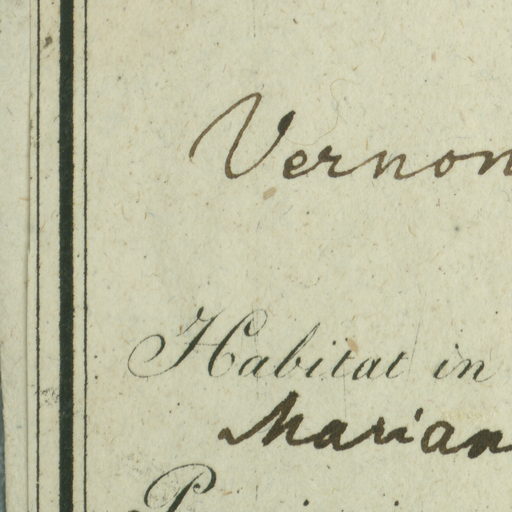 Vernon
Habitat in
Marian